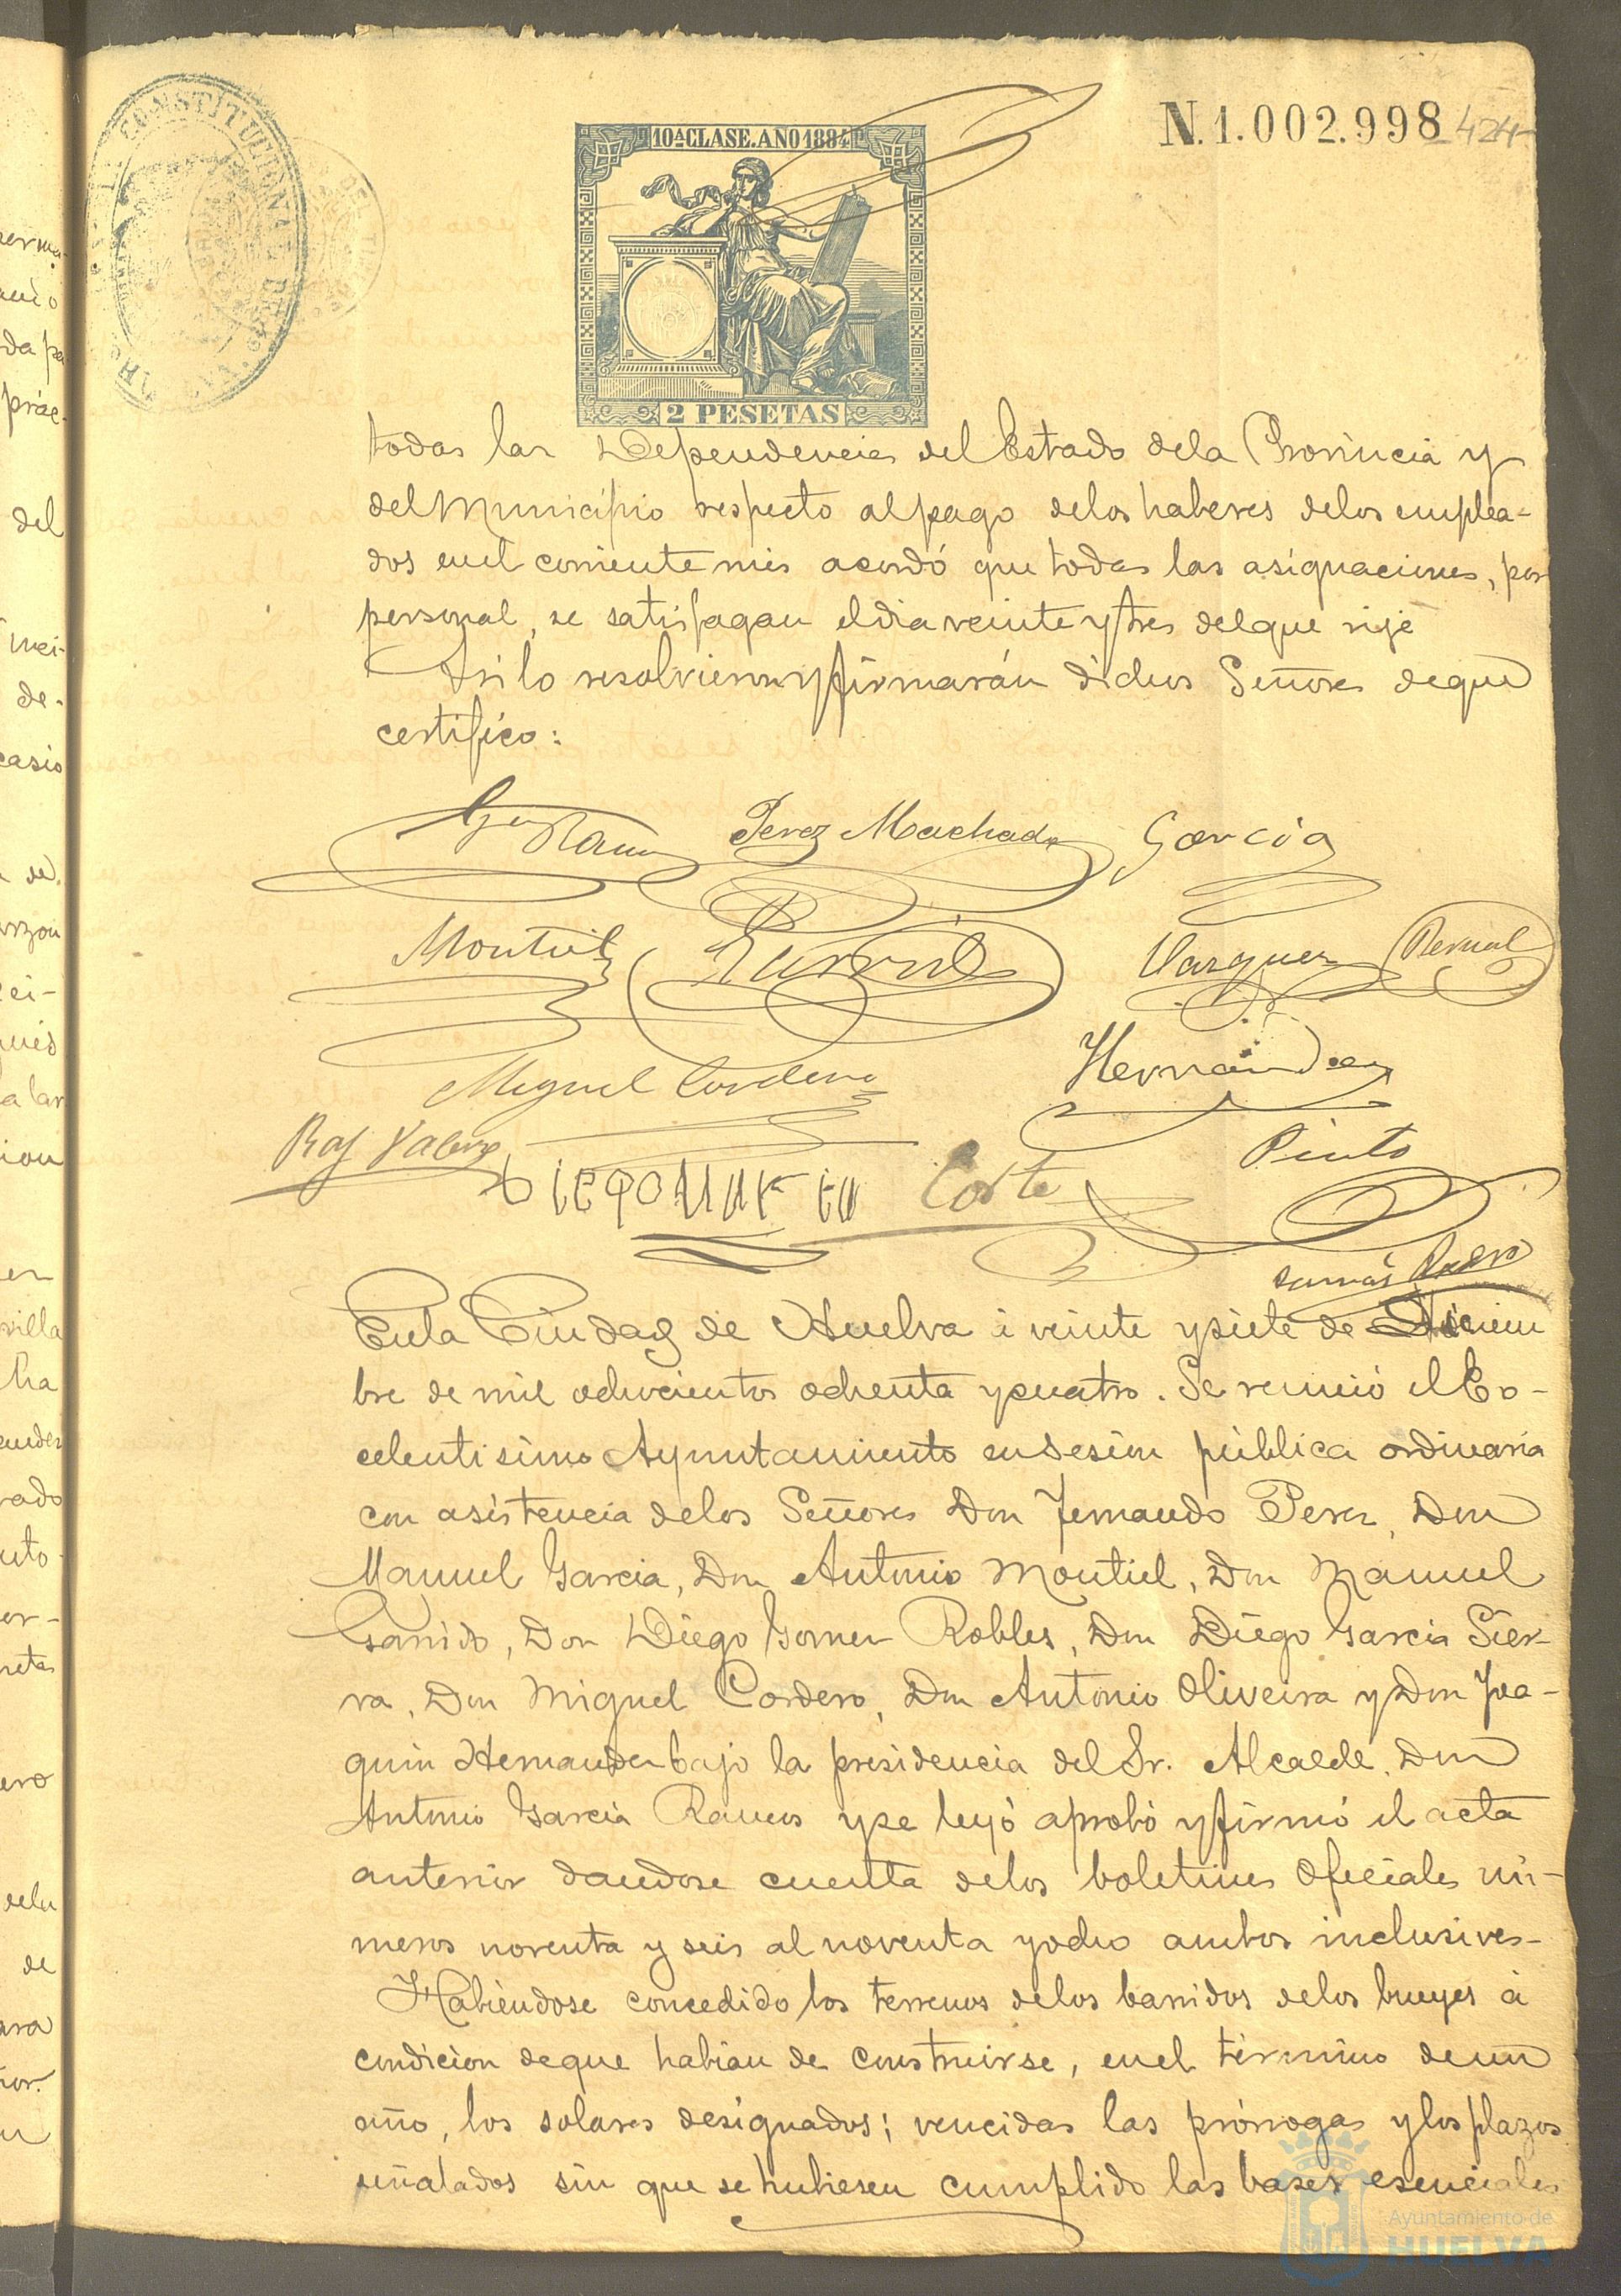 N.1.002.998
424
10ª CLASE. AÑO 1884
2 PESETAS
CONSTITUCIONAL DE
todas las Dependencias del Estado dela Provincia y
del Municipio respecto al pago delos haberes delos emplea-
dos enel corriente mes acordó que todas las asignaciones, por
personal, se satisfagan el dia veinte y tres del que rije
Asi lo resolvieron y firmarán dichos Señores deque
certifico:
Perez Machado García
Montiel Garrido Vazquez Bernal
Miguel Cordero Hernandez
Pinto
Corte
Enla Ciudad de Huelva á veinte y siete de Diciem
bre de mil ochocientos ochenta y cuatro. Se reunió el Ex-
celentisimo Ayuntamiento en sesion pública ordinaria
con asistencia delos Señores Don Fernando Perez, Don
Manuel Garcia, Don Antonio Montiel, Don Manuel
Garrido, Don Diego Gomez Robles, Don Diego Garcia Sier-
ra, Don Miguel Cordero, Don Antonio Oliveira y Don Joa-
quin Hernandez bajo la presidencia del Sr. Alcalde, Don
Antonio Garcia Ramos y se leyó aprobó y firmó el acta
anterior dandose cuenta delos boletines oficiales nú-
meros noventa y seis al noventa y ocho ambos inclusives-
Habiendose concedido los terrenos delos barridos delos bueyes á
condicion deque habian de construirse, enel término de un
año, los solares designados; vencidas las prórrogas y los plazos
señalados sin que se hubiesen cumplido las bases esenciales
Ayuntamiento de
HUELVA